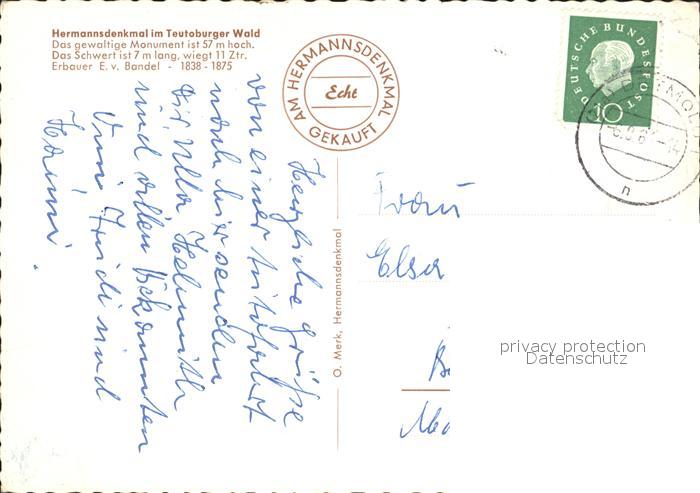 Hermannsdenkmal im Teutoburger Wald
Das gewaltige Monument ist 57 m hoch.
Das Schwert ist 7 m lang, wiegt 11 Ztr.
Erbauer E. v. Bandel - 1838-1875
AM HERMANNSDENKMAL
Echt
GEKAUFT
DEUTSCHE BUNDESPOST
10
Herzliche Grüße
von einer Autofahrt
nach hier senden
Dir Ulla Helmuth
und allen Bekannten
Trudi und
Heini.
O. Merk, Hermannsdenkmal
Frau
Elsa
privacy protection
Datenschutz